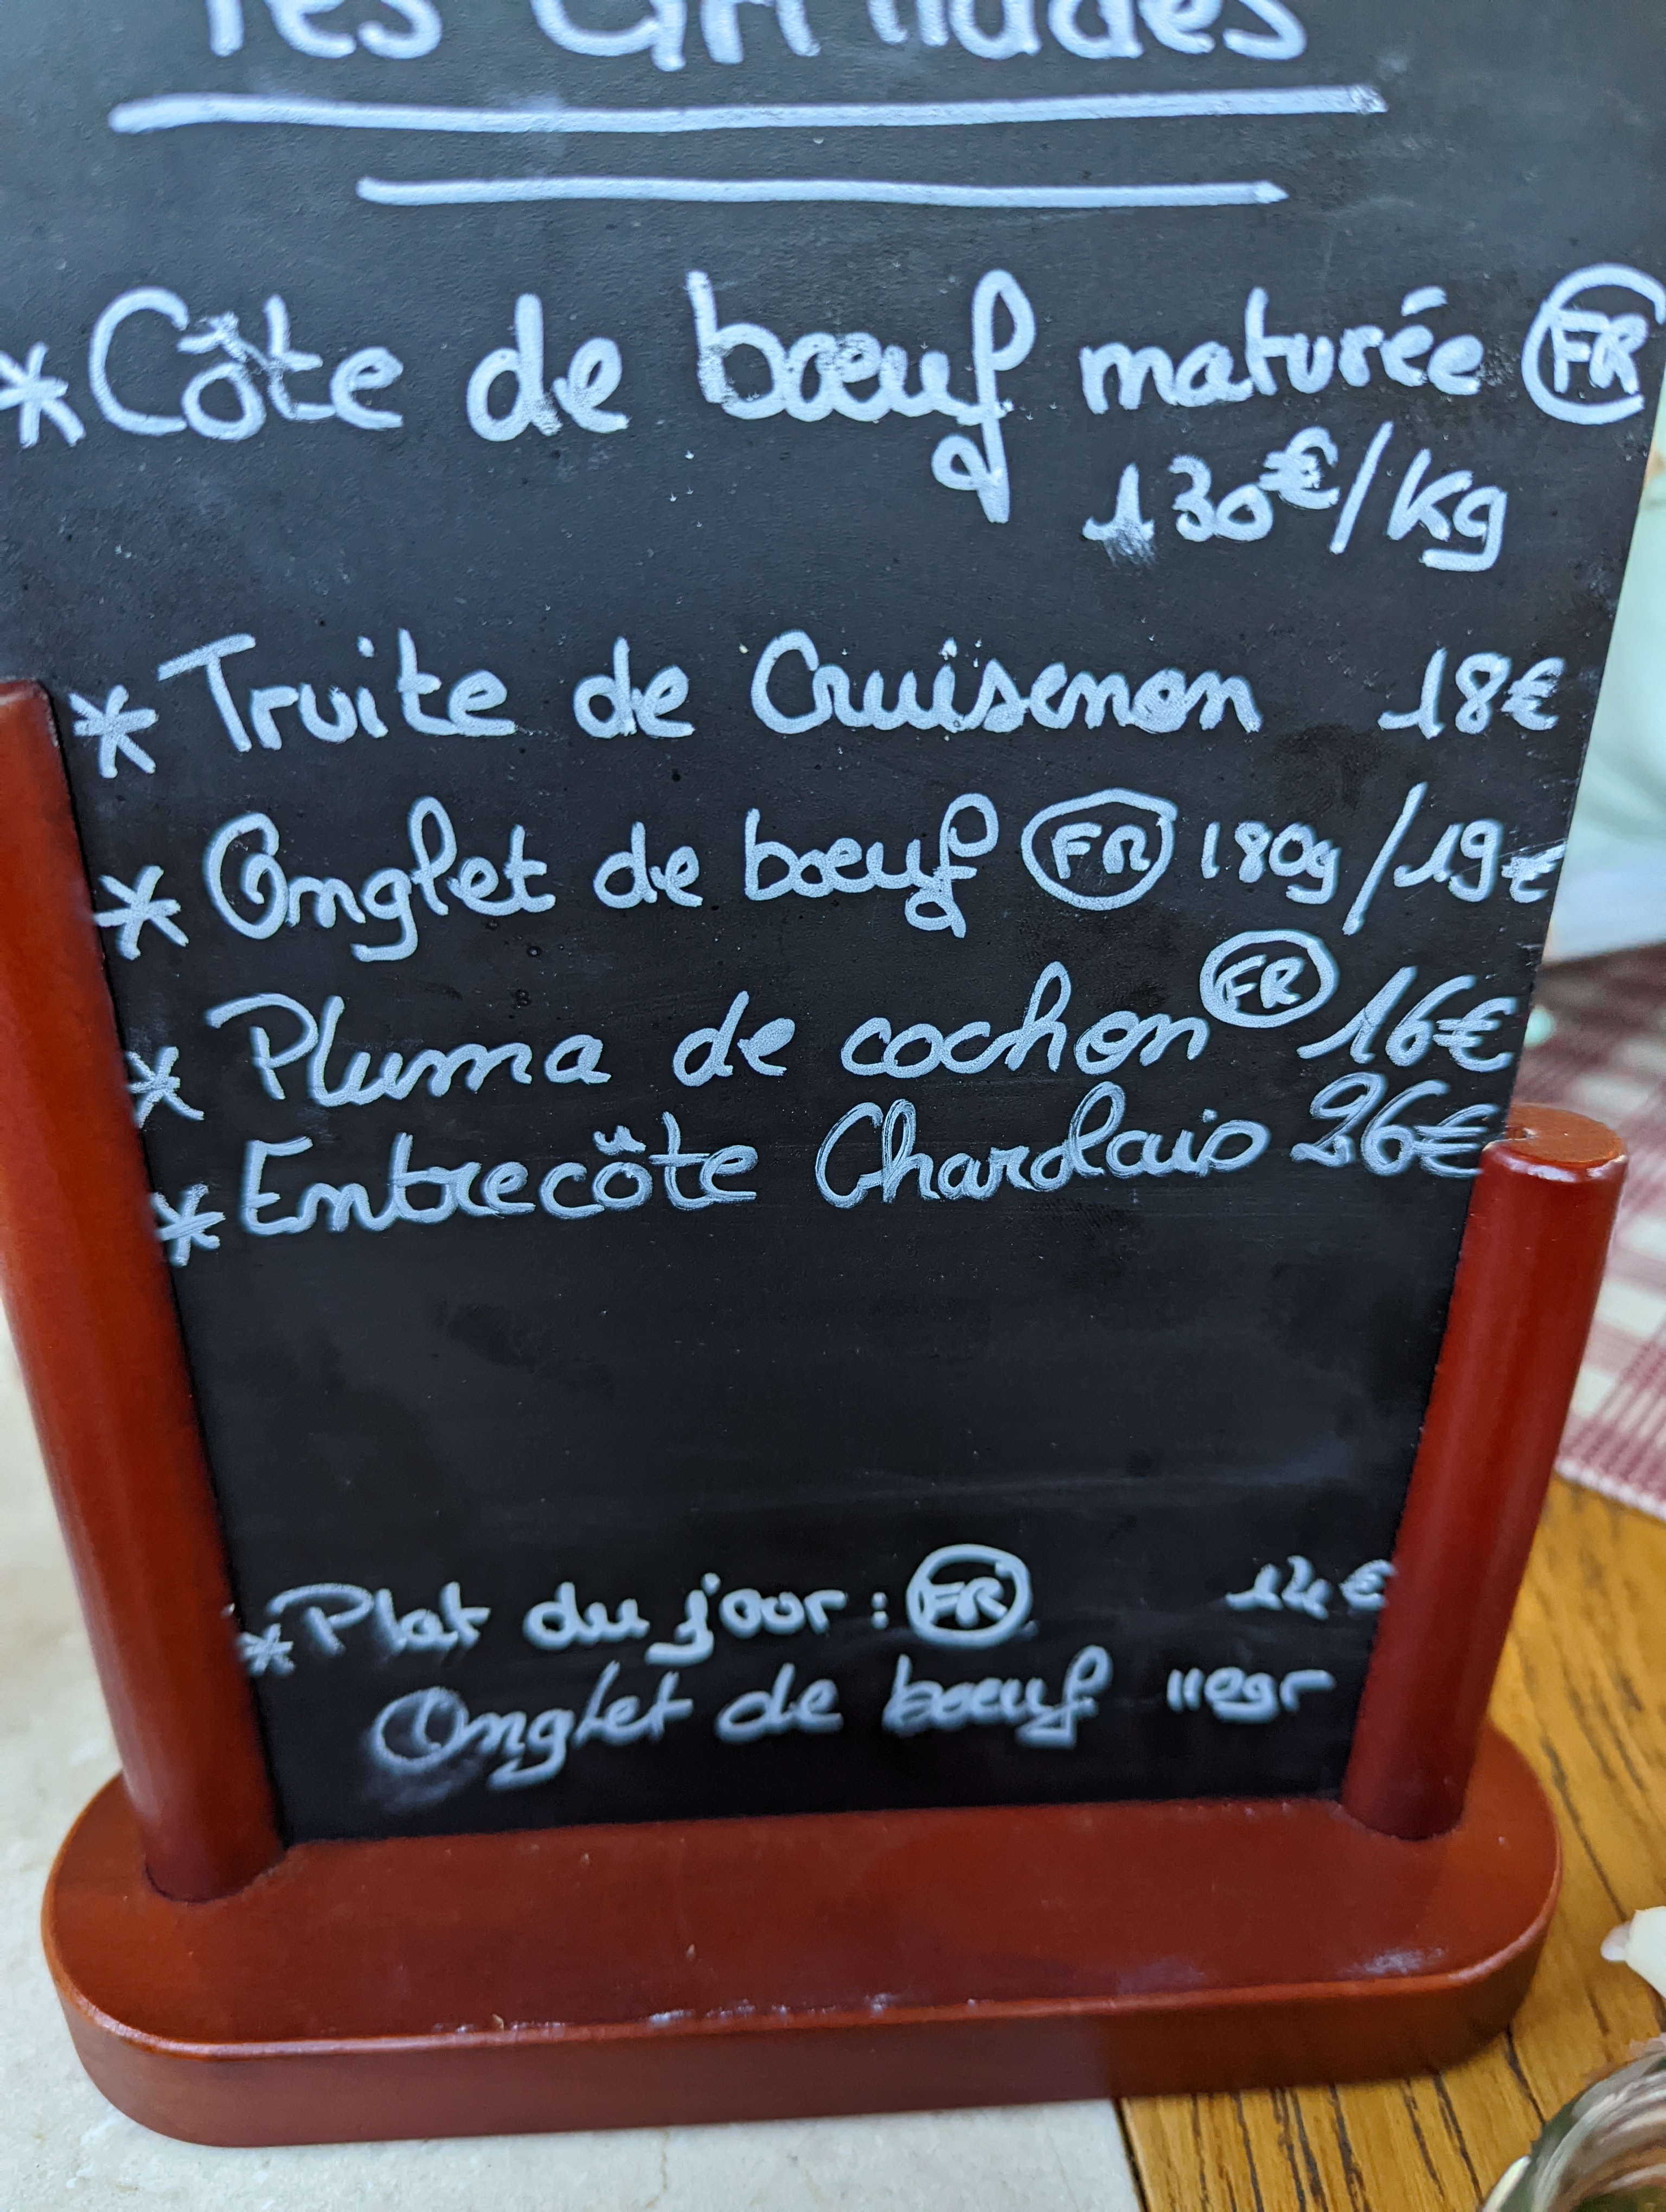 les Grillades
*Côte de bœuf maturée FR
130€/Kg
* Truite de Cruïsenon 18€
* Onglet de bœuf FR 180g/19€
* Pluma de cochon FR 16€
* Entrecôte Charolais 26€
*Plat du jour : FR
Onglet de bœuf